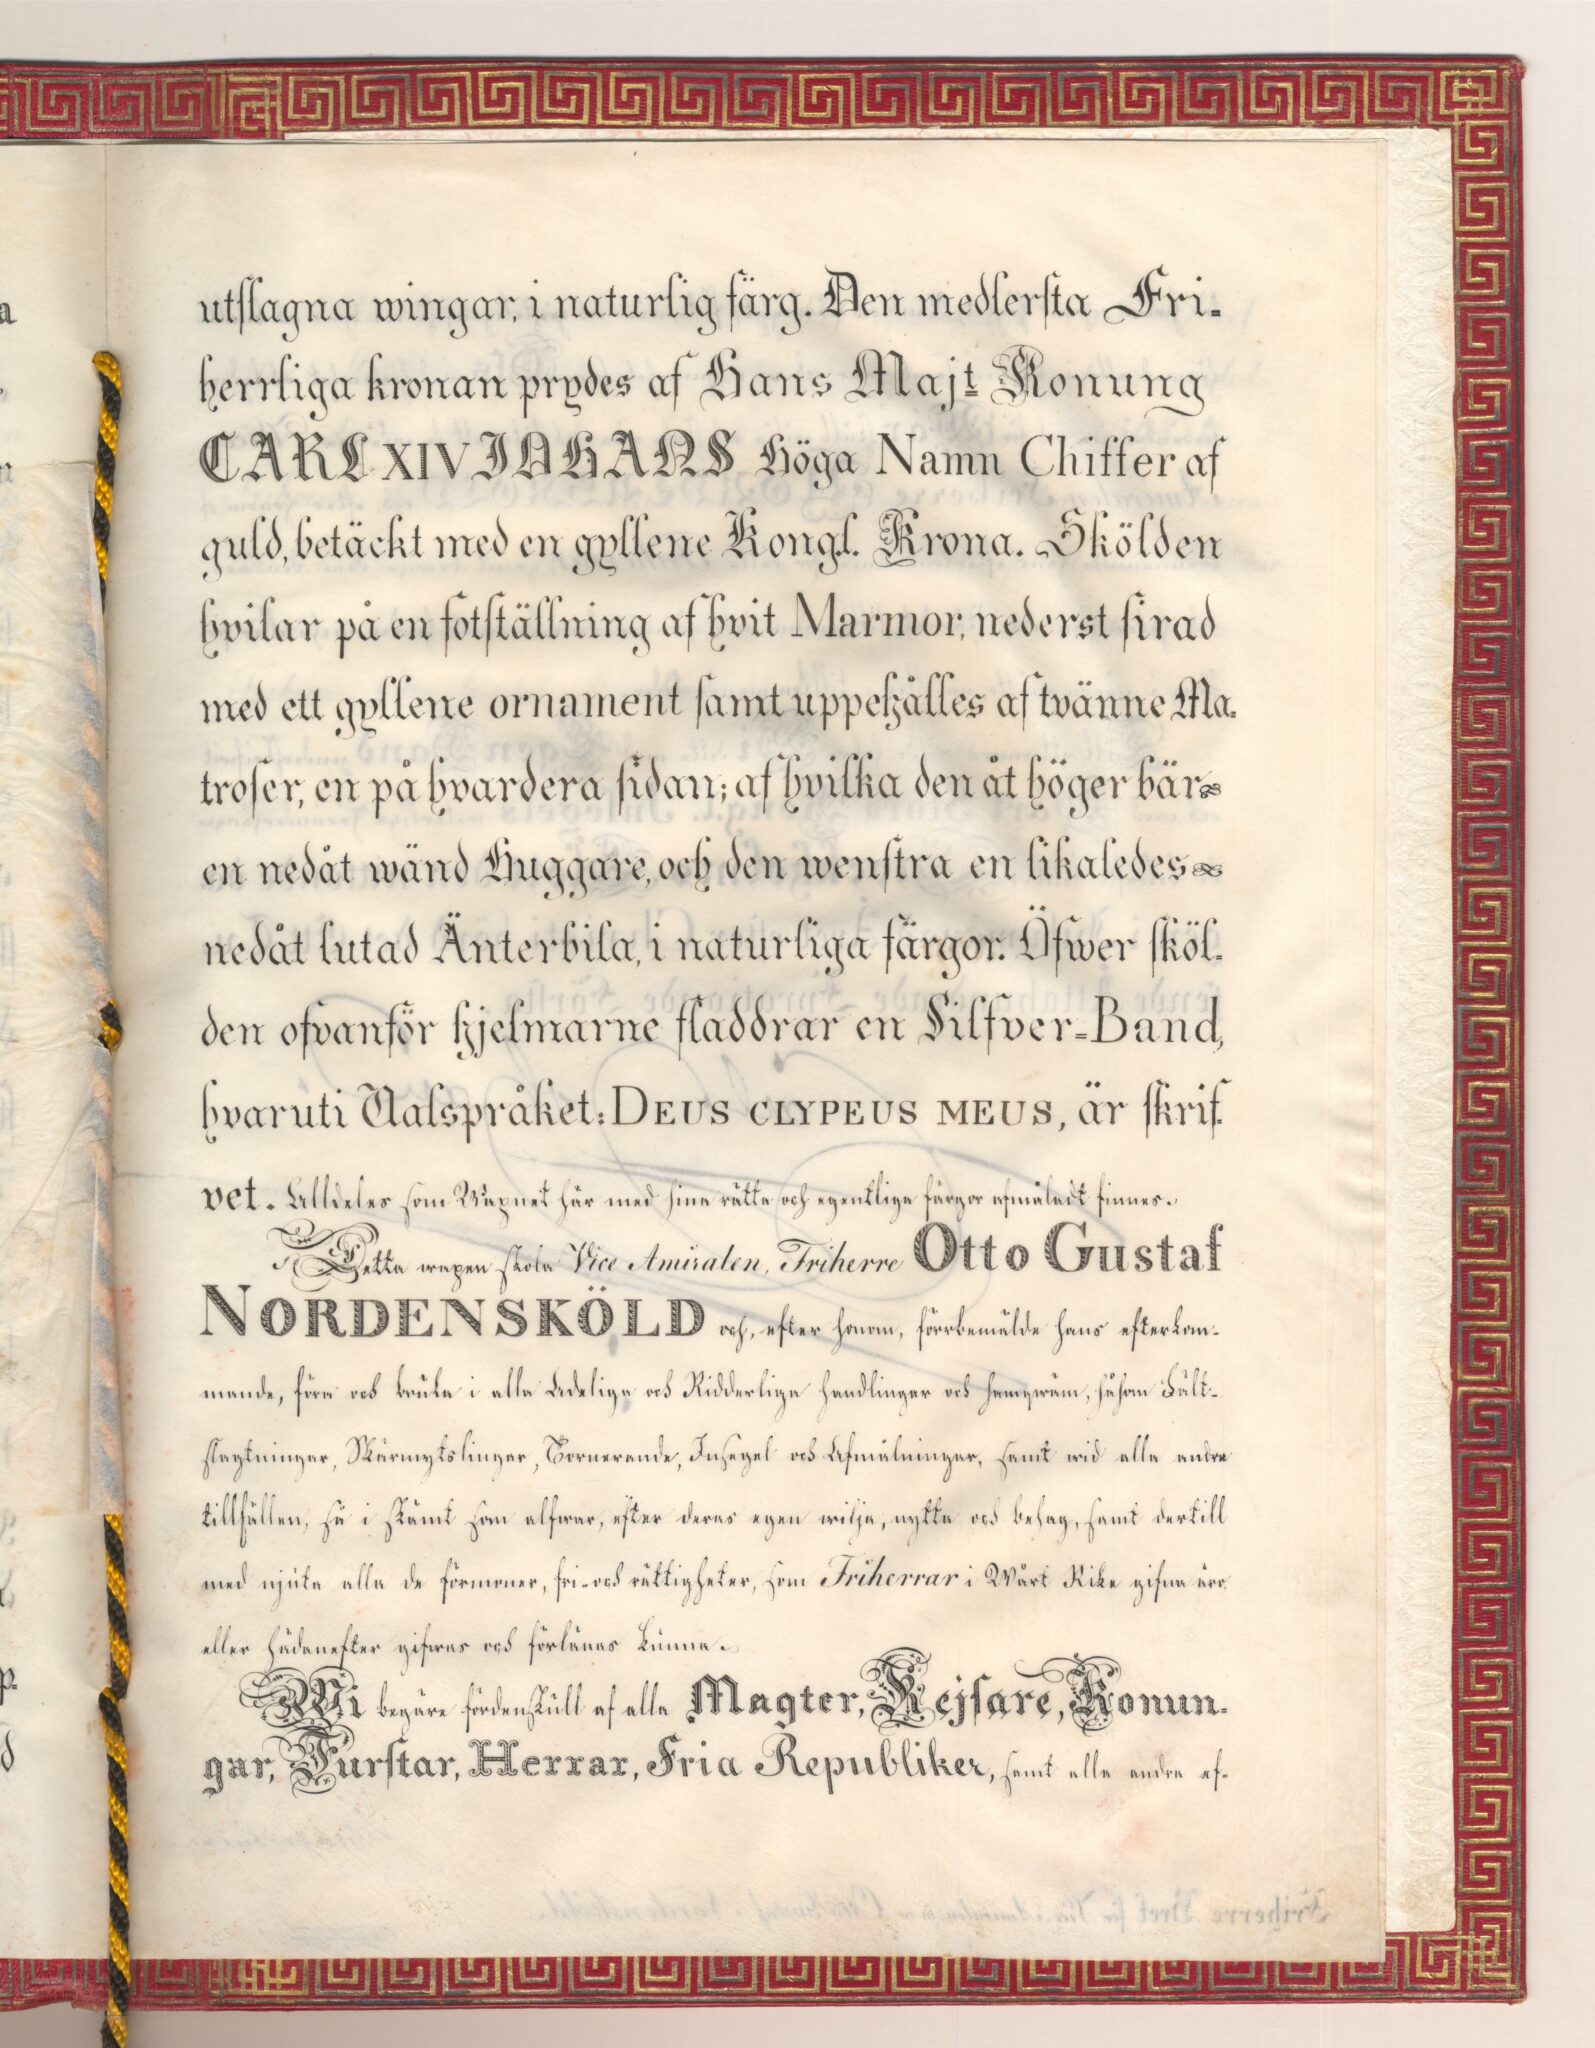 utslagna wingar, i naturlig färg. Den medlersta Fri-
herrliga kronan prydes af Hans Majt Konung
CARL XIV JOHANS Höga Namn Chiffer af
guld, betäckt med en gyllene Kongl. Krona. Skölden
hvilar på en fotställning af hvit Marmor, nederst sirad
med ett gyllene ornament samt uppehålles af tvänne Ma-
troser, en på hvardera sidan; af hvilka den åt höger bär
en nedåt wänd Huggare, och den wenstra en likaledes
nedåt lutad Änterbila, i naturliga färgor. Öfwer sköl-
den ofvanför hjelmarne fladdrar en Silfver-Band,
hvaruti Valspråket: DEUS CLYPEUS MEUS, är skrif-
vet. Alldeles som Wapnet här med sina rätta och egentliga färgor afmåladt finnes.
Detta wapen skola Vice Amiralen, Friherre Otto Gustaf
NORDENSKÖLD och, efter honom, förrbemälde hans efterkom-
mande, föra och bruka i alla Adeliga och Ridderliga handlingar och hemqwäm, såsom Fält-
slagtningar, Skärmytslingar, Tornerande, Insegel och Afmålningar, samt wid alla andra
tillfällen, så i skämt som alfwar, efter deras egen wilja, nytta och behag, samt dertill
med njuta alla de förmoner, fri- och rättigheter, som Friherrar i Wårt Rike gifna äro,
eller hädanefter gifwas och förlänas kunna.
Wi begäre fördenskull af alla Magter, Kejsare, Konun-
gar, Furstar, Herrar, Fria Republiker, samt alla andra ef-